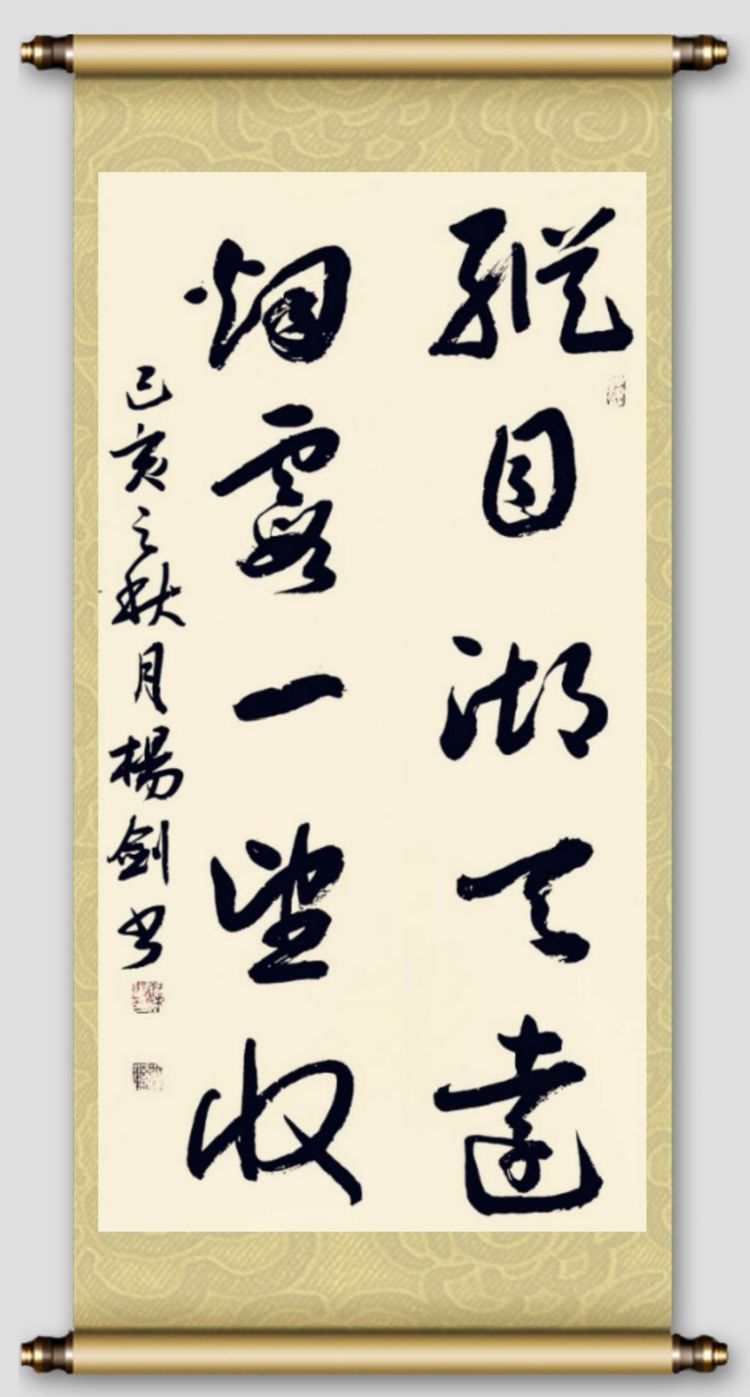 縱目湖天遠
烟霞一望收
己亥之秋月楊劍书